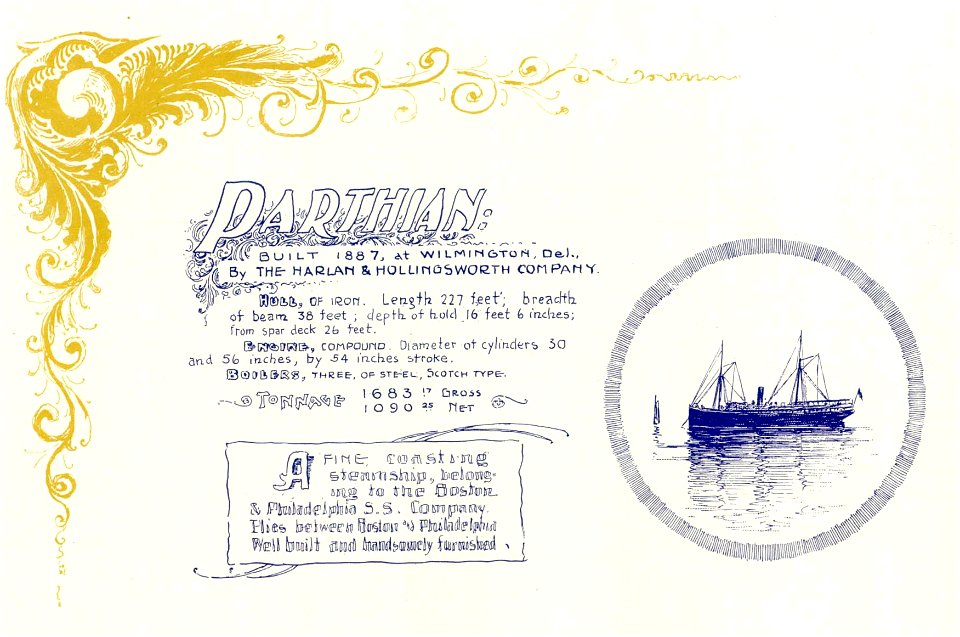 PARTHIAN:
BUILT 1887, at WILMINGTON, Del.,
By THE HARLAN & HOLLINGSWORTH COMPANY.
HULL, OF IRON. Length 227 feet; breadth
of beam 38 feet; depth of hold 16 feet 6 inches;
from spar deck 26 feet.
ENGINE, COMPOUND. Diameter of cylinders 30
and 56 inches, by 54 inches stroke.
BOILERS, THREE, OF STEEL, SCOTCH TYPE.
TONNAGE 1683 17 GROSS
1090 25 NET
A FINE coasting
steamship, belong-
ing to the Boston
& Philadelphia S.S. Company.
Plies between Boston and Philadelphia
Well built and handsomely furnished.